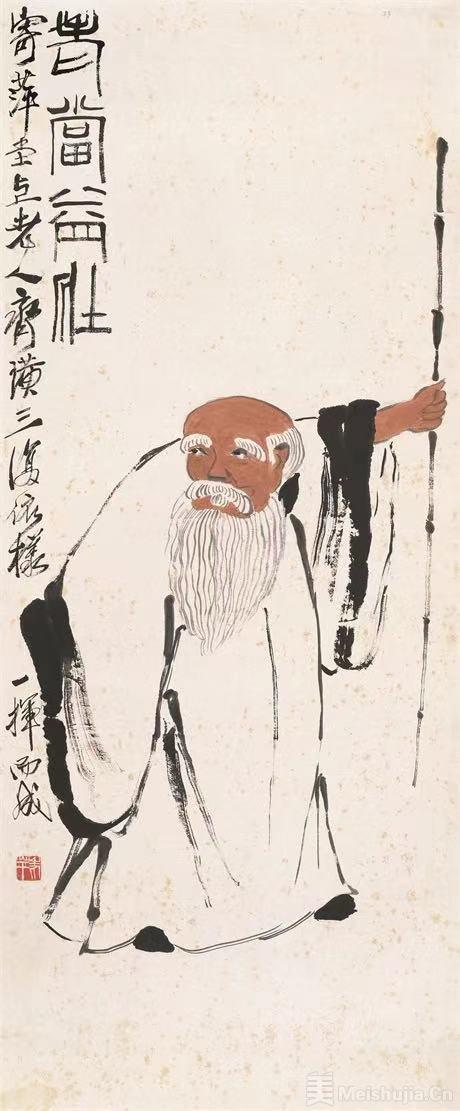 老當益壯
寄萍堂上老人齊璜三復依樣
一揮而成
美 Meishujia.Cn